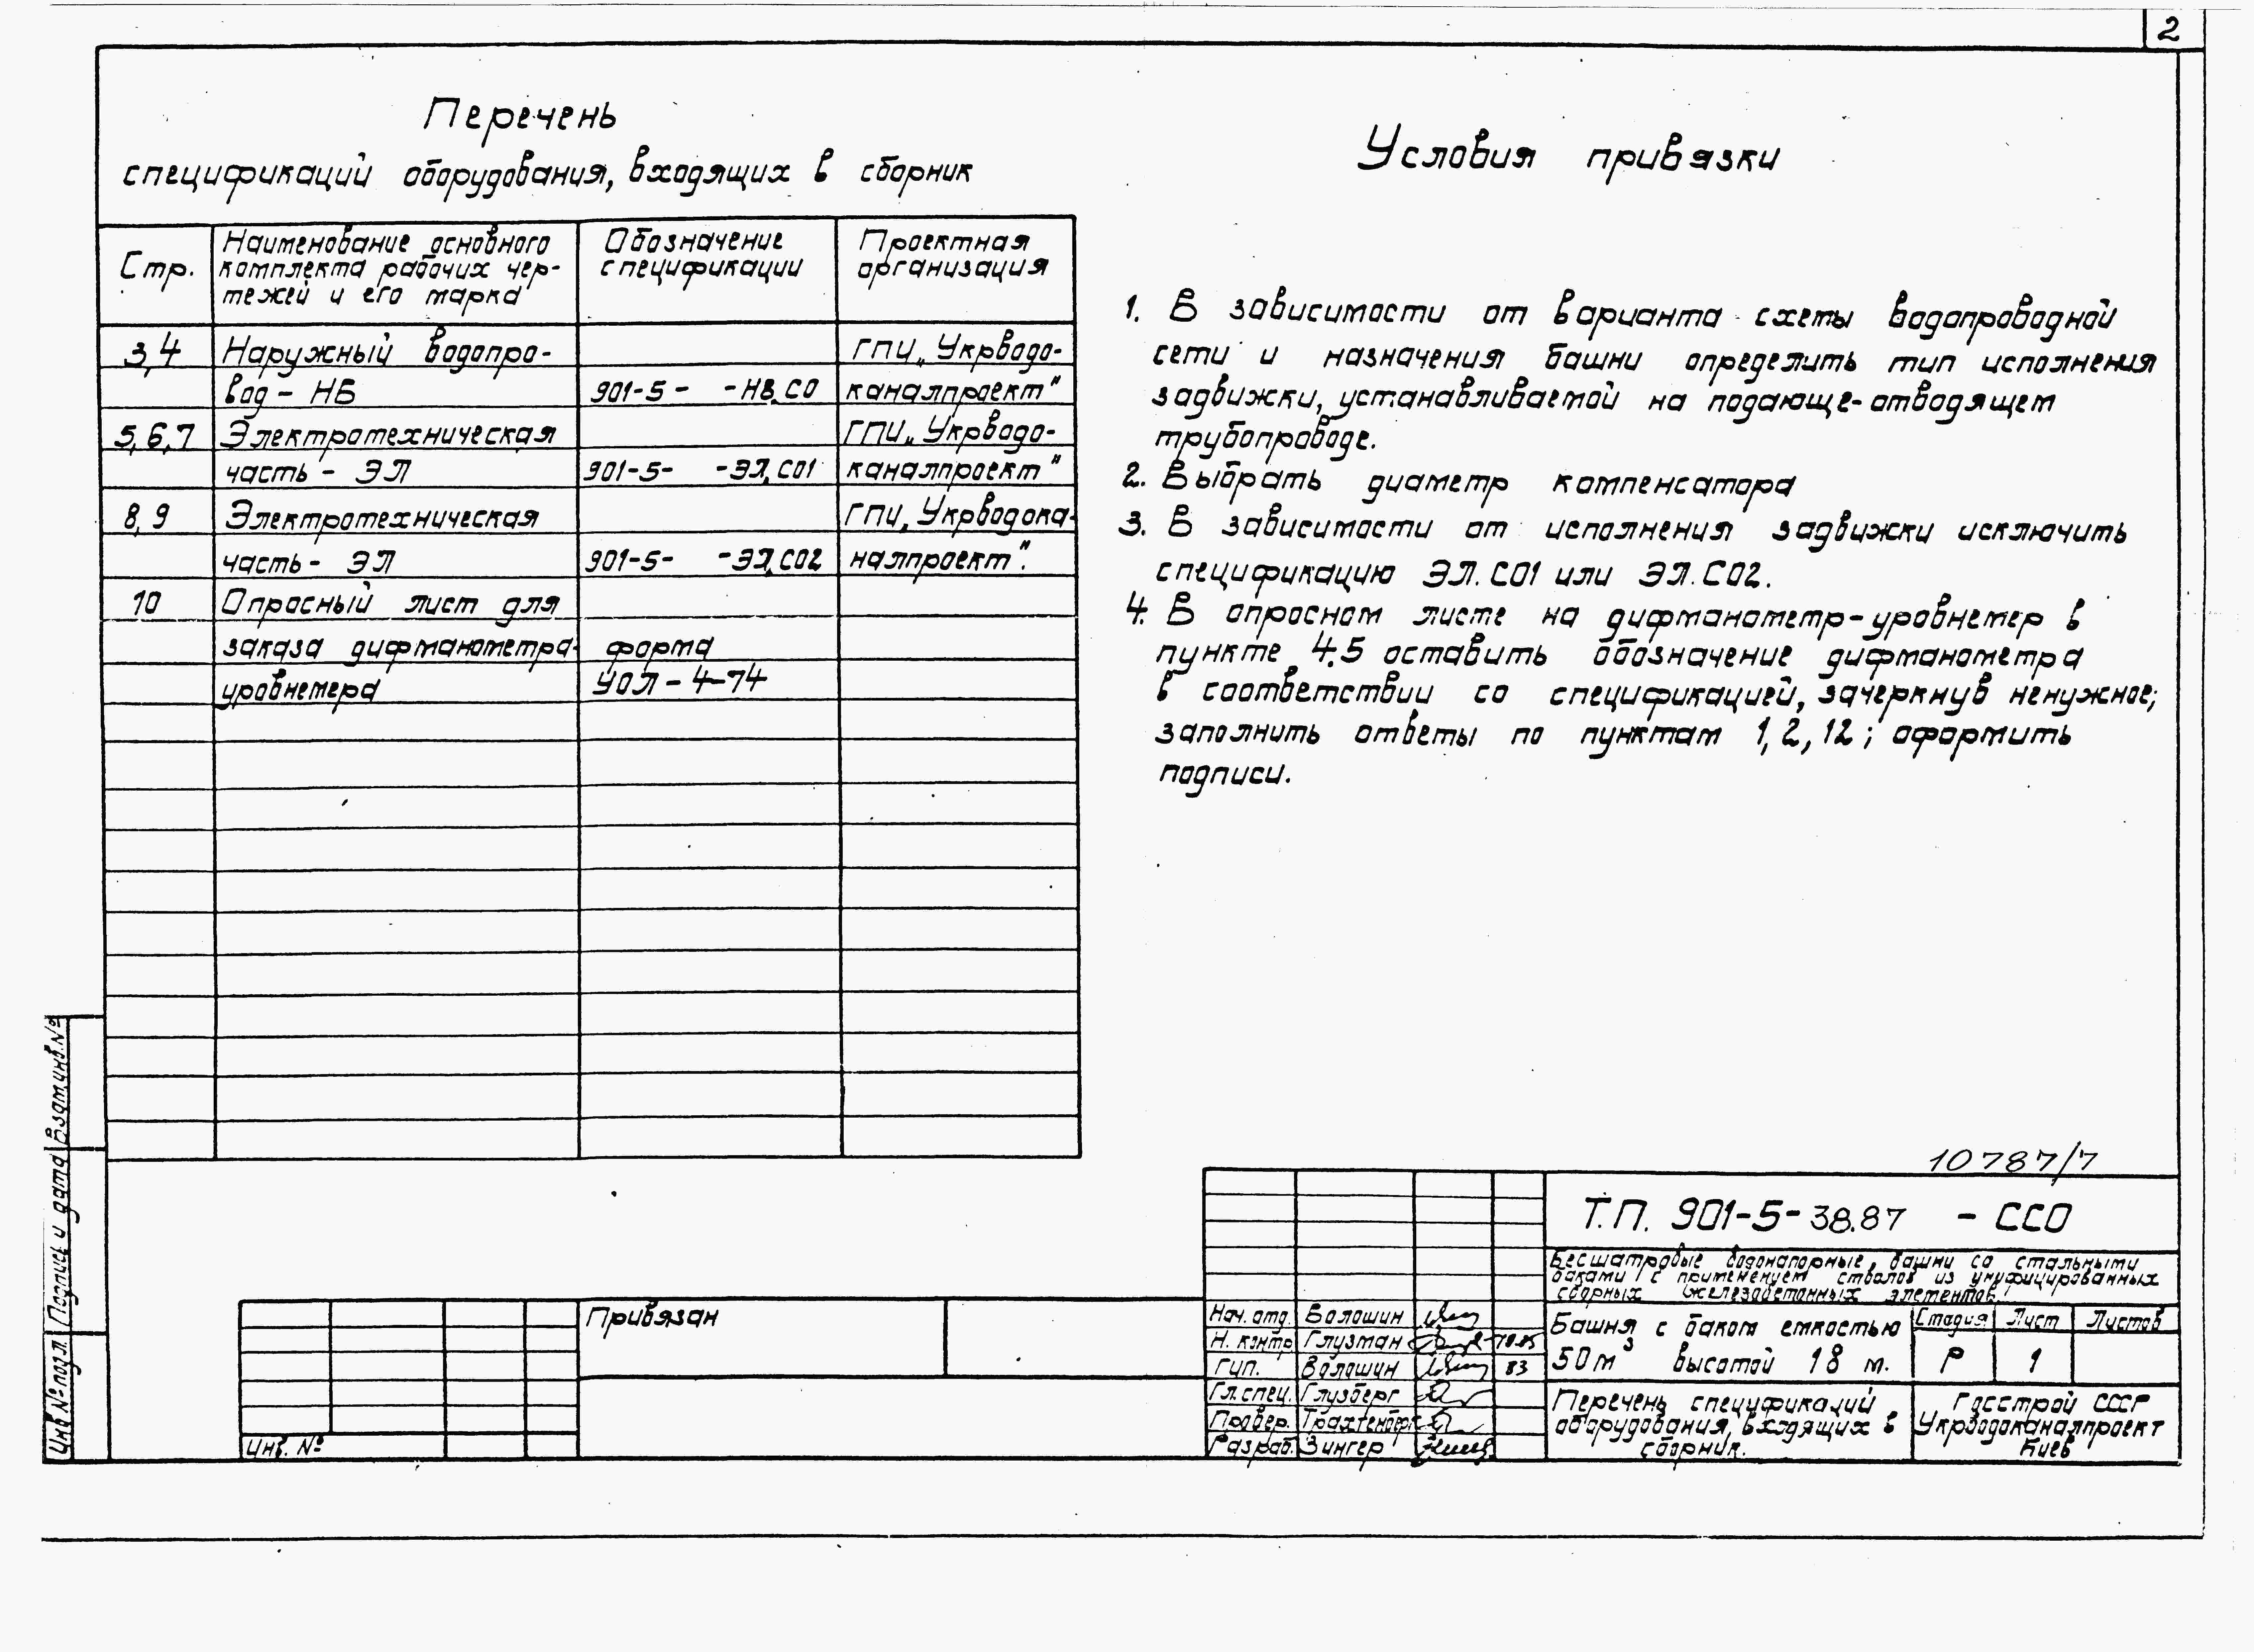 2
Перечень
спецификаций оборудования, входящих в сборник
Стр.
Наименование основного
комплекта рабочих чер-
тежей и его марка
Обозначение
спецификации
Проектная
организация
3,4 Наружный водопро- ГПИ „Укрводо-
вод - НВ 901-5- -НВ.СО каналпроект"
5,6,7 Электротехническая ГПИ „Укрводо-
часть - ЭЛ 901-5- -ЭЛ.СО1 каналпроект"
8,9 Электротехническая ГПИ „Укрводока-
часть - ЭЛ 901-5- -ЭЛ.СО2 налпроект".
10 Опросный лист для
заказа дифманометра- форма
уровнемера УОЛ-4-74
Условия привязки
1. В зависимости от варианта схемы водопроводной
сети и назначения башни определить тип исполнения
задвижки, устанавливаемой на подающе-отводящем
трубопроводе.
2. Выбрать диаметр компенсатора
3. В зависимости от исполнения задвижки исключить
спецификацию ЭЛ.СО1 или ЭЛ.СО2.
4. В опросном листе на дифманометр-уровнемер в
пункте 4.5 оставить обозначение дифманометра
в соответствии со спецификацией, зачеркнув ненужное;
заполнить ответы по пунктам 1, 2, 12; оформить
подписи.
10787/7
Т.П. 901-5-38.87 - ССО
Бесшатровые водонапорные башни со стальными
баками с применением стволов из унифицированных
сборных железобетонных элементов.
Башня с баком емкостью
50м³ высотой 18 м.
Стадия Лист Листов
Р 1
Перечень спецификаций
оборудования, входящих в
сборник.
Госстрой СССР
Укрводоканалпроект
Киев
Нач. отд. Волошин
Н. контр Глузман
Гип. Волошин 83
Гл. спец. Глузберг
Провер. Трахтенберг
Разраб. Зингер
Привязан
Инв. №
Взам. инв. №
Подпись и дата
Инв № подл.